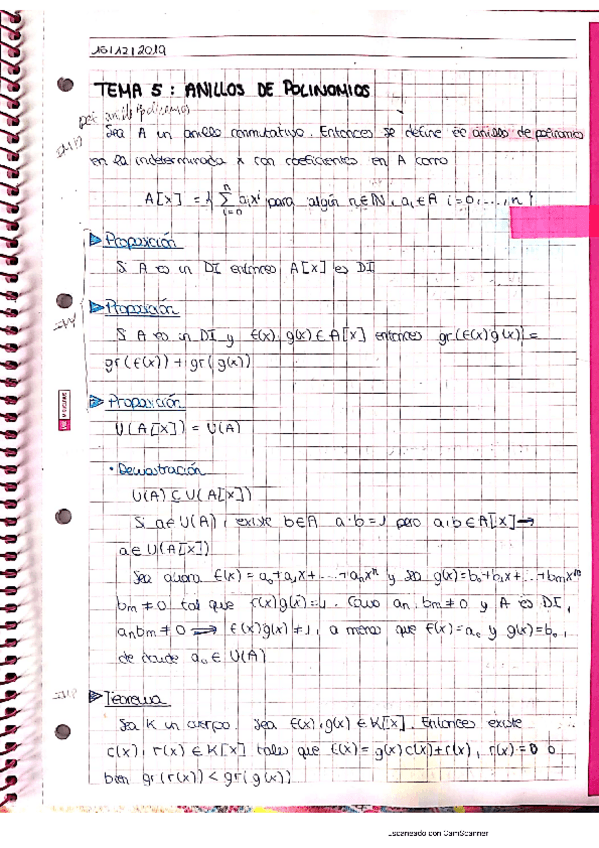 16/12/2019
TEMA 5 : ANILLOS DE POLINOMIOS
Sea A un anillo conmutativo. Entonces se define el anillo de polinomios
en la indeterminada x con coeficientes en A como
A[x] = { n Σ i=0 aᵢxⁱ para algún n∈ℕ, aᵢ∈A i=0,...,n }
Proposición
Si A es un DI entonces A[x] es DI
Proposición
Si A es un DI y f(x), g(x) ∈ A[x] entonces gr(f(x)g(x)) =
gr(f(x)) + gr(g(x))
Proposición
U(A[x]) = U(A)
• Demostración
U(A) ⊆ U(A[x])
Si a∈U(A), existe b∈A a·b=1 pero a,b∈A[x] →
a∈U(A[x])
Sea ahora f(x) = a₀+a₁x+...+aₙxⁿ y sea g(x)=b₀+b₁x+...+bₘxᵐ
bₘ≠0 tal que f(x)g(x)=1. Como aₙ.bₘ≠0 y A es DI,
aₙbₘ≠0 ⟹ f(x)g(x)≠1, a menos que f(x)=a₀ y g(x)=b₀,
de donde a₀∈U(A)
Teorema
Sea K un cuerpo. Sea f(x), g(x) ∈ K[x]. Entonces existe
c(x), r(x) ∈ K[x] tales que f(x) = g(x)c(x)+r(x), r(x)=0 o
bien gr(r(x)) < gr(g(x))
Escaneado con CamScanner